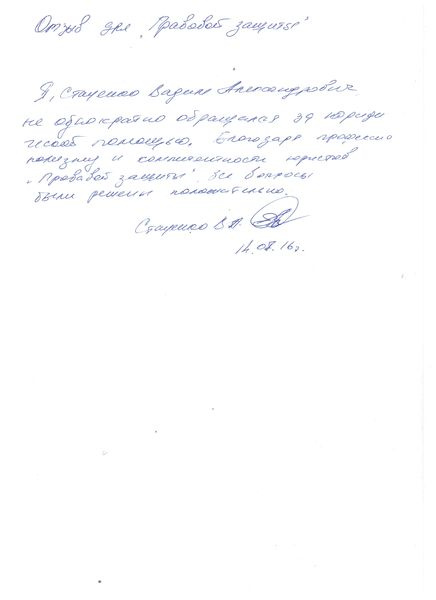 Отзыв для „Правовой защиты"
Я, Стаценко Вадим Александрович
не однократно обращался за юриди
ческой помощью. Благодаря професио
нализму и компетентности юристов
„Правовой защиты" все вопросы
были решены положительно.
Стаценко В.А.
14.07.16г.